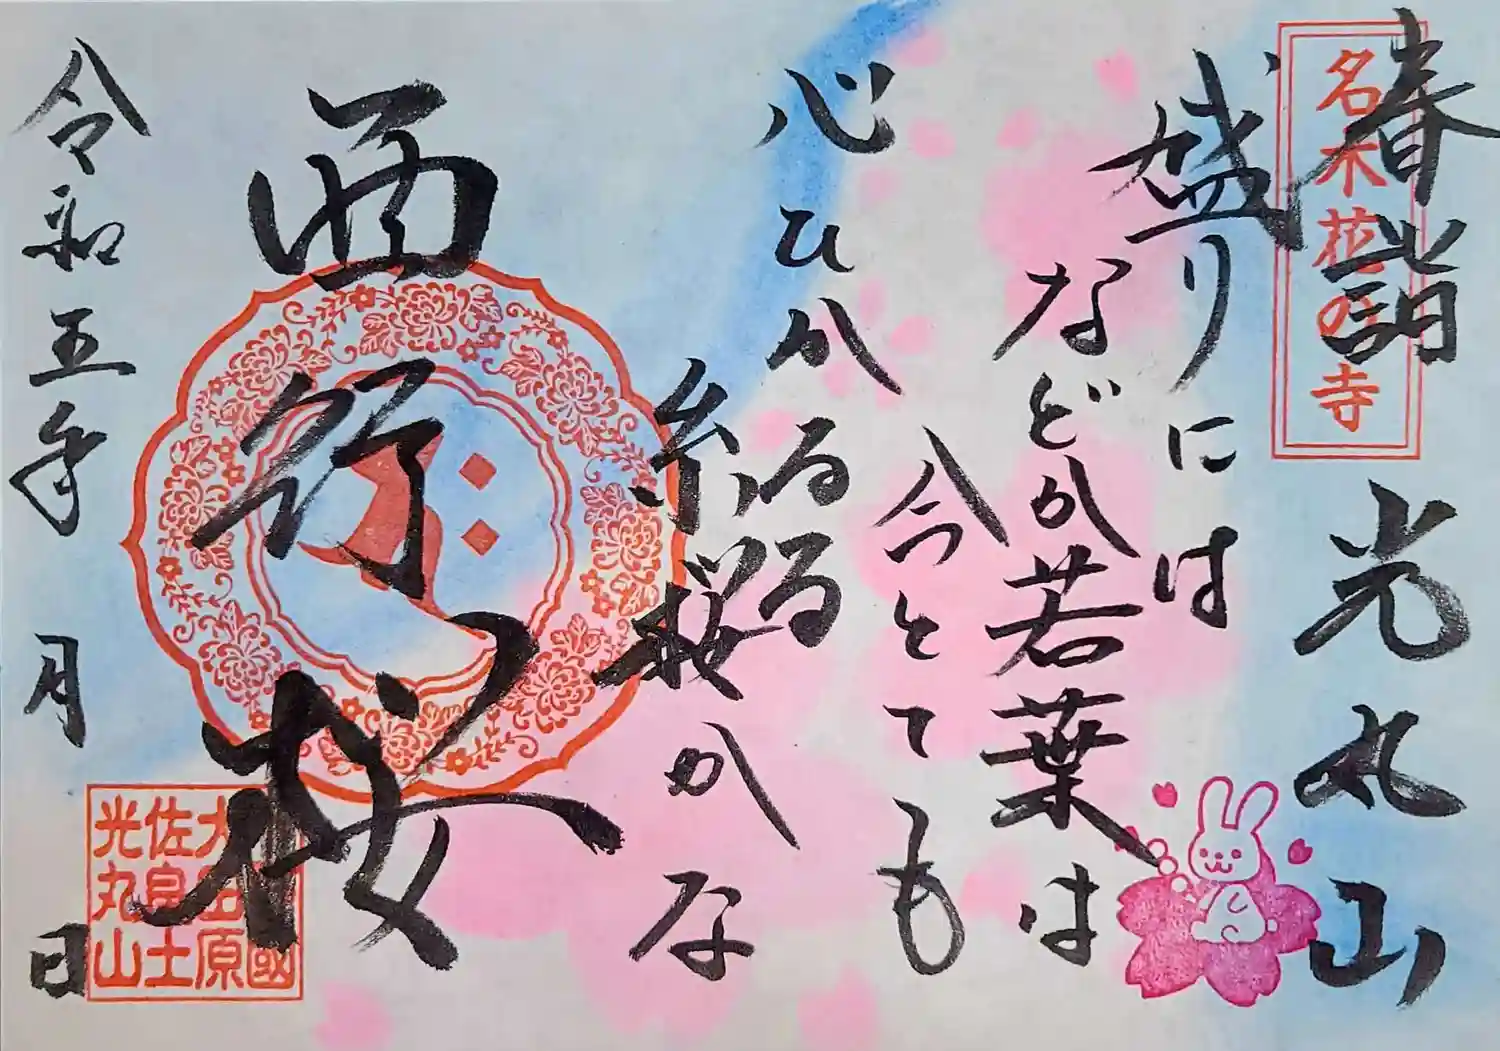 春詣
光丸山
名木花の寺
盛りには
などか若葉は
今とても
心ひかるる
糸桜かな
西行桜
令和五年 月 日
國
大田原
佐良土
光丸山